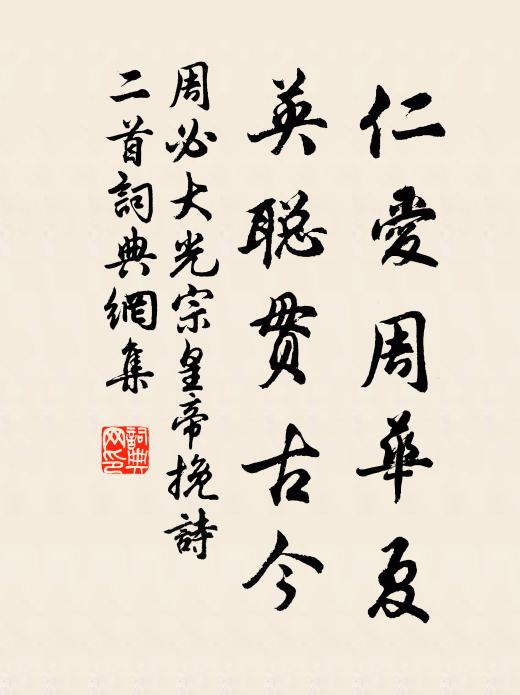 仁愛周華夏
英聪贯古今
周必大光宗皇帝挽詩
二首詞典網集
詞典网印